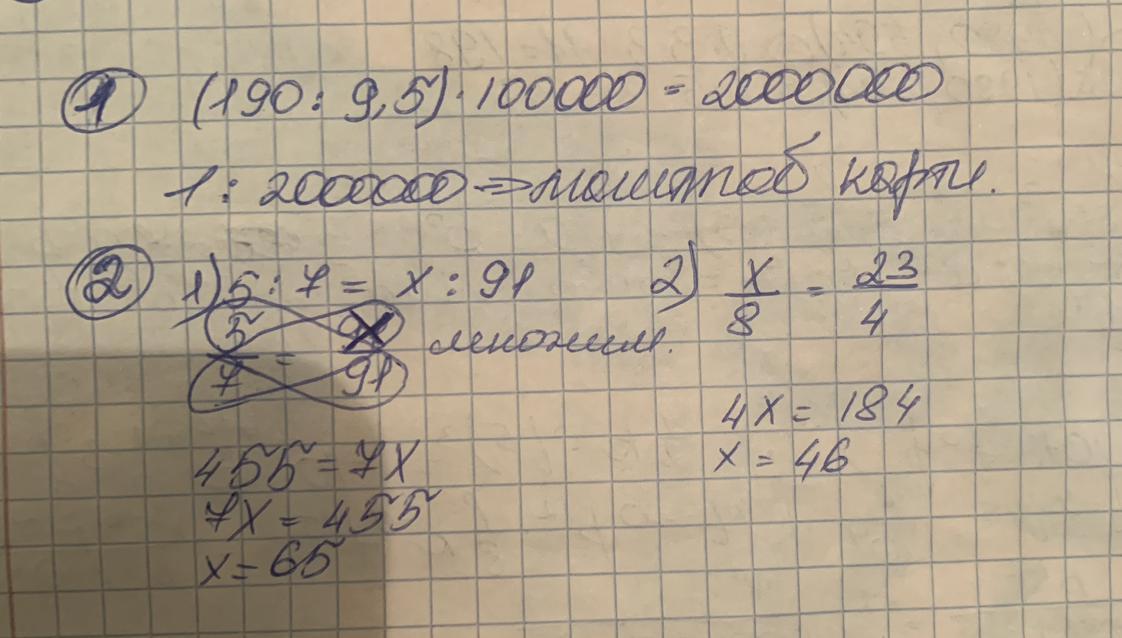 1 (190 : 9,5) · 100000 = 2000000
1 : 2000000 => масштаб карты.
2 1) 5 : 7 = x : 91
5/7 = x/91 множим.
455 = 7x
7x = 455
x = 65
2) x/8 = 23/4
4x = 184
x = 46